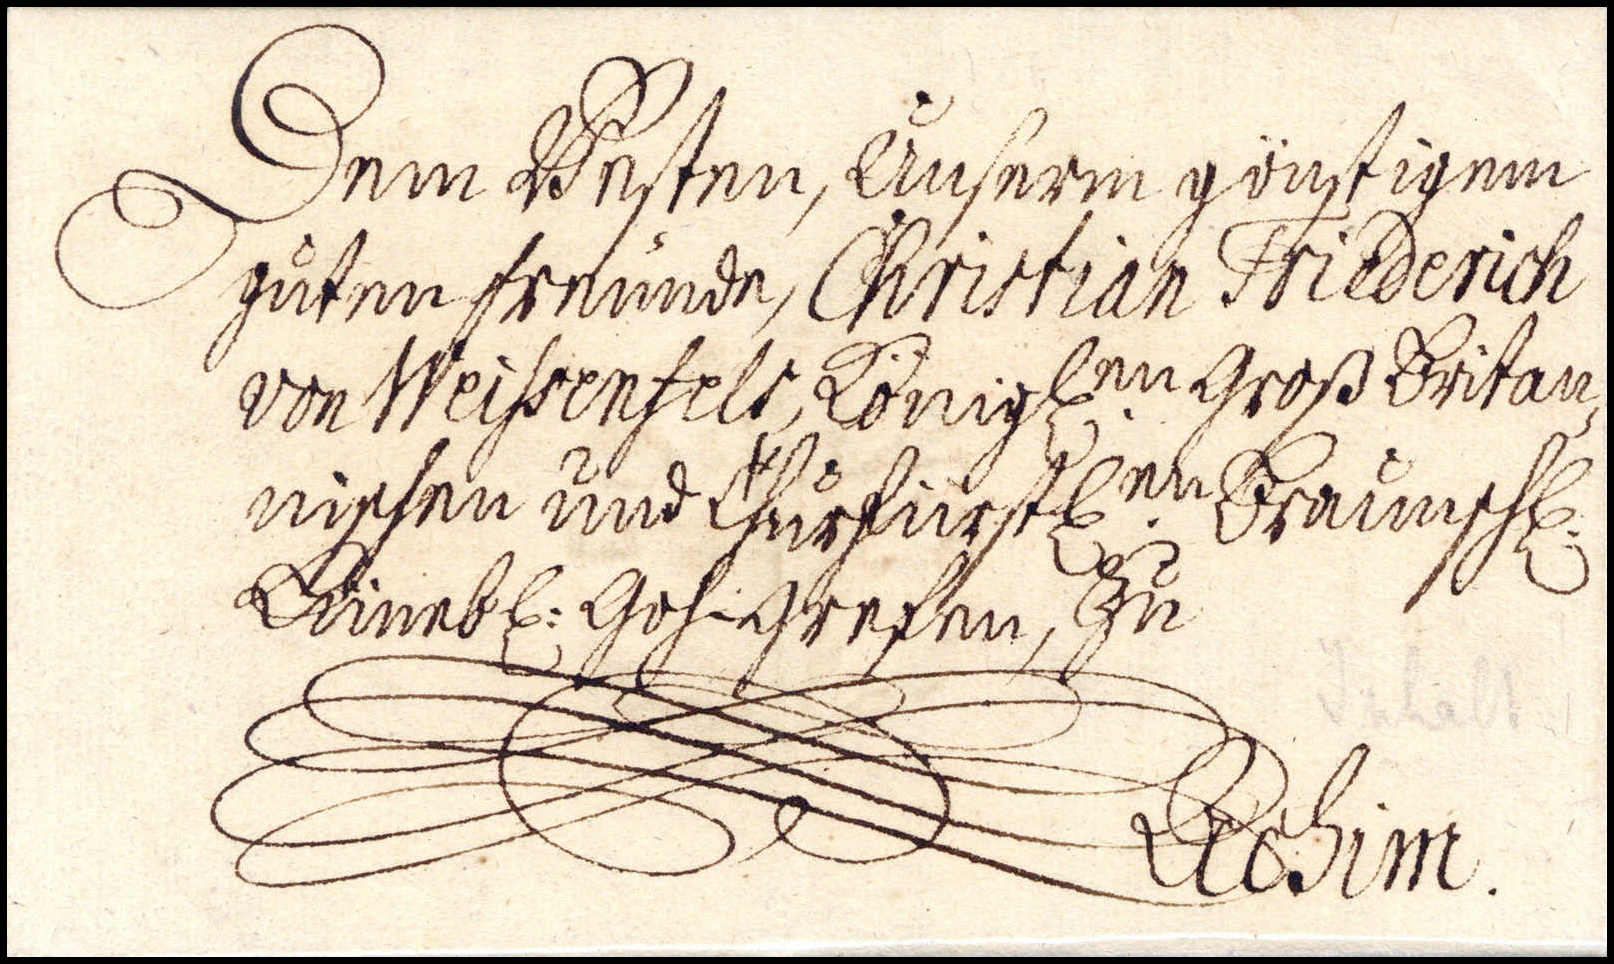 Dem Vesten, Unserm günstigem
guten freunde, Christian Friederich
von Weissenfels, Königl.en Groß Britan,
nischen und Churfürstl.en Braunschl:
Lüneb: Gohgrefen, zu
Achim.
Inhalt